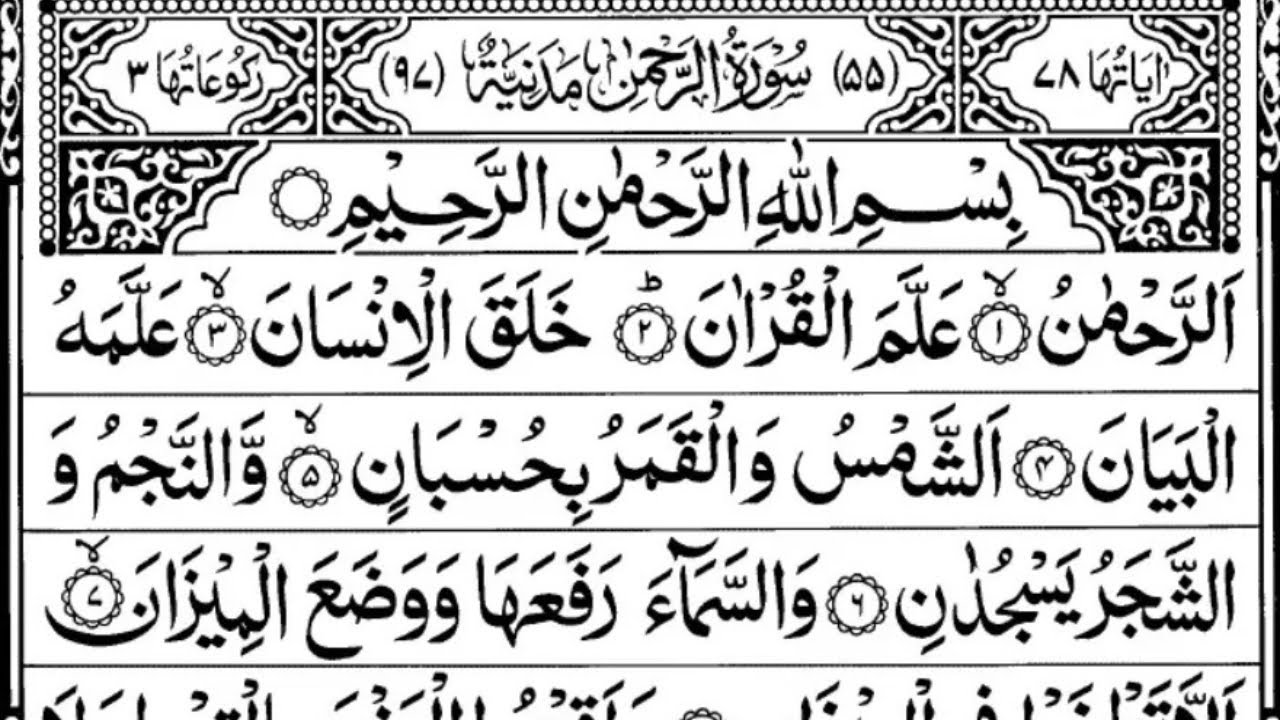 اٰيَاتُهَا ٧٨ (۵۵) سُوْرَةُ الرَّحْمٰنِ مَدَنِيَّةٌ (٩٧) رُكُوْعَاتُهَا ٣
بِسْمِ اللّٰهِ الرَّحْمٰنِ الرَّحِيْمِ
اَلرَّحْمٰنُ ۙ‏﴿۱﴾ عَلَّمَ الْقُرْاٰنَ ؕ‏﴿۲﴾ خَلَقَ الْاِنْسَانَ ۙ‏﴿۳﴾ عَلَّمَهُ
الْبَيَانَ ‏﴿۴﴾ اَلشَّمْسُ وَالْقَمَرُ بِحُسْبَانٍ ۙ‏﴿۵﴾ وَّالنَّجْمُ وَ
الشَّجَرُ يَسْجُدٰنِ ‏﴿۶﴾ وَالسَّمَآءَ رَفَعَهَا وَوَضَعَ الْمِيْزَانَ ۙ‏﴿۷﴾